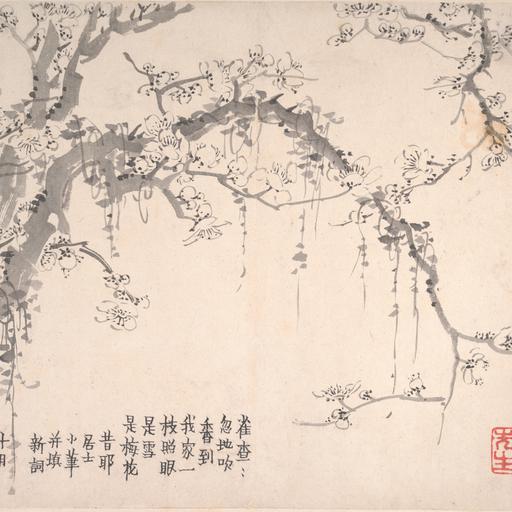 雀查：
忽地吹
香到
我家一
枝照眼
是雪
是梅花
昔耶
居士
小筆
并填
新詞
先生